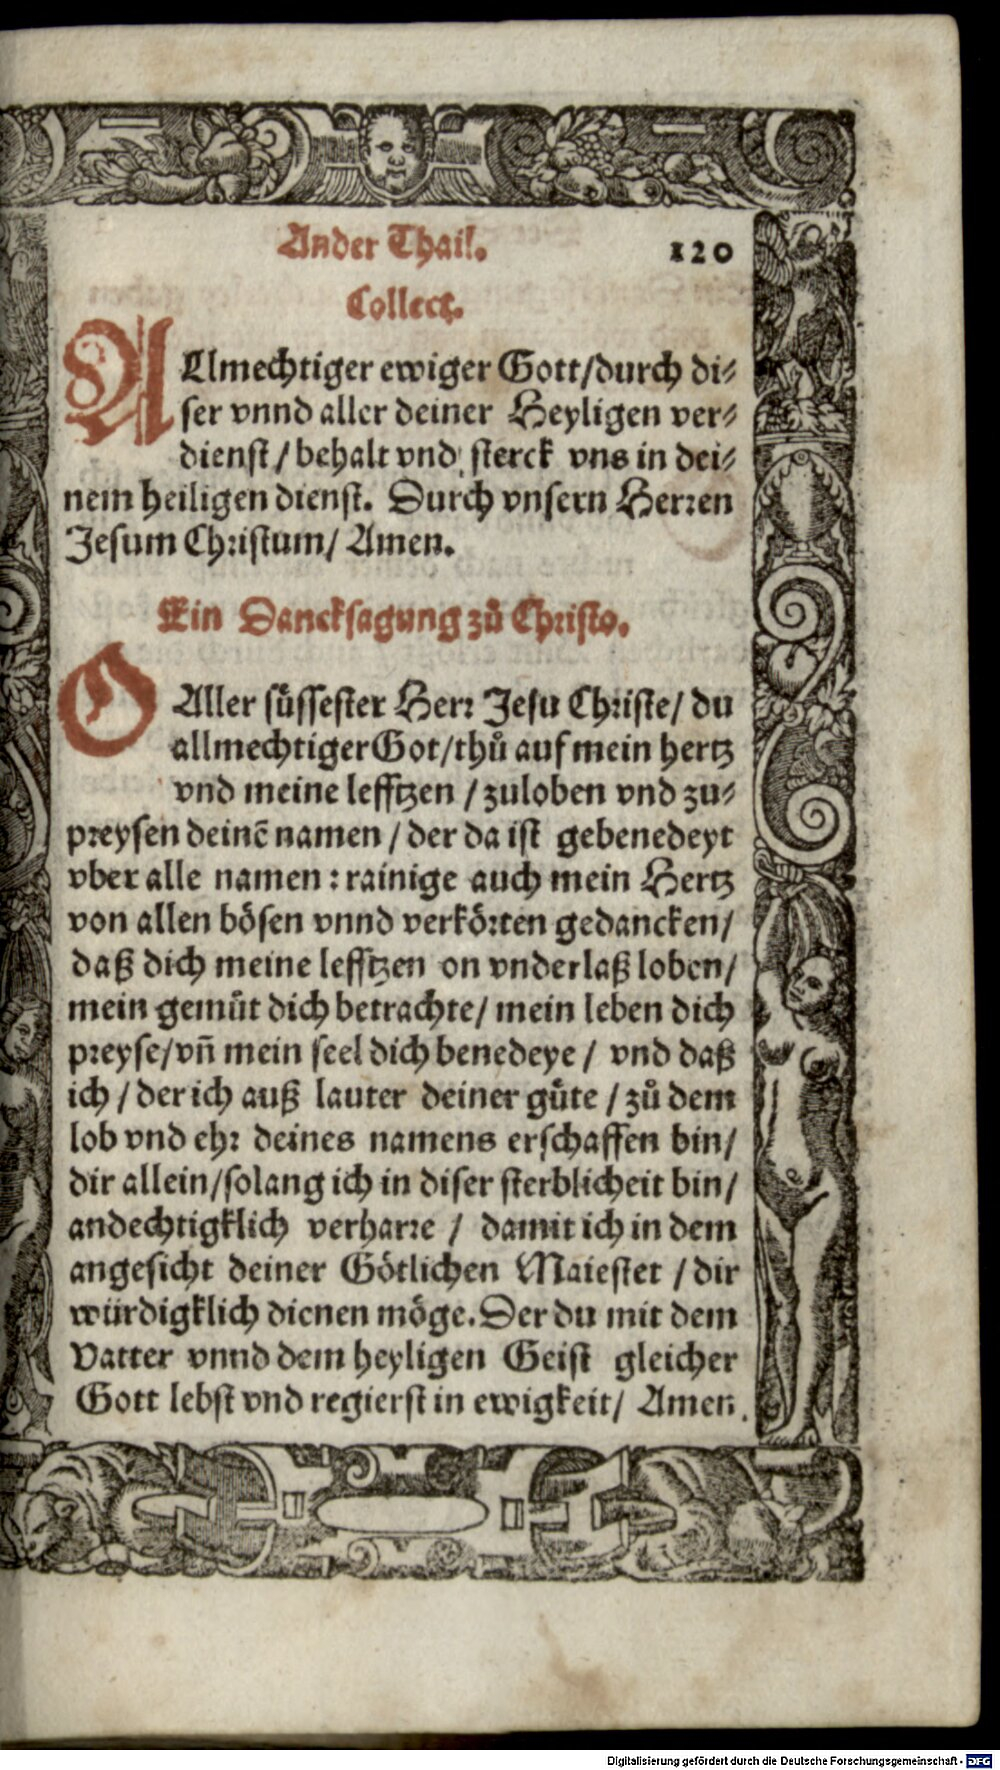 Ander Thail. 120
Collect.
ALlmechtiger ewiger Gott/durch di⸗
ser vnnd aller deiner Heyligen ver⸗
dienst/ behalt vnd sterck vns in dei⸗
nem heiligen dienst. Durch vnsern Herꝛen
Jesum Chꝛistum/ Amen.
Ein Dancksagung zů Chꝛisto.
O Aller süssester Herꝛ Jesu Chꝛiste/ du
allmechtiger Got/thů auf mein hertz
vnd meine lefftzen / zuloben vnd zu⸗
pꝛeysen deinē namen / der da ist gebenedeyt
vber alle namen : rainige auch mein Hertz
von allen bösen vnnd verköꝛten gedancken/
daß dich meine lefftzen on vnderlaß loben/
mein gemüt dich betrachte/ mein leben dich
pꝛeyse/vñ mein seel dich benedeye / vnd daß
ich / der ich auß lauter deiner güte / zů dem
lob vnd ehꝛ deines namens erschaffen bin/
dir allein/solang ich in diser sterblicheit bin/
andechtigklich verharꝛe / damit ich in dem
angesicht deiner Götlichen Maiestet / dir
würdigklich dienen möge. Der du mit dem
Vatter vnnd dem heyligen Geist gleicher
Gott lebst vnd regierst in ewigkeit/ Amen.
Digitalisierung gefördert durch die Deutsche Forschungsgemeinschaft - DFG